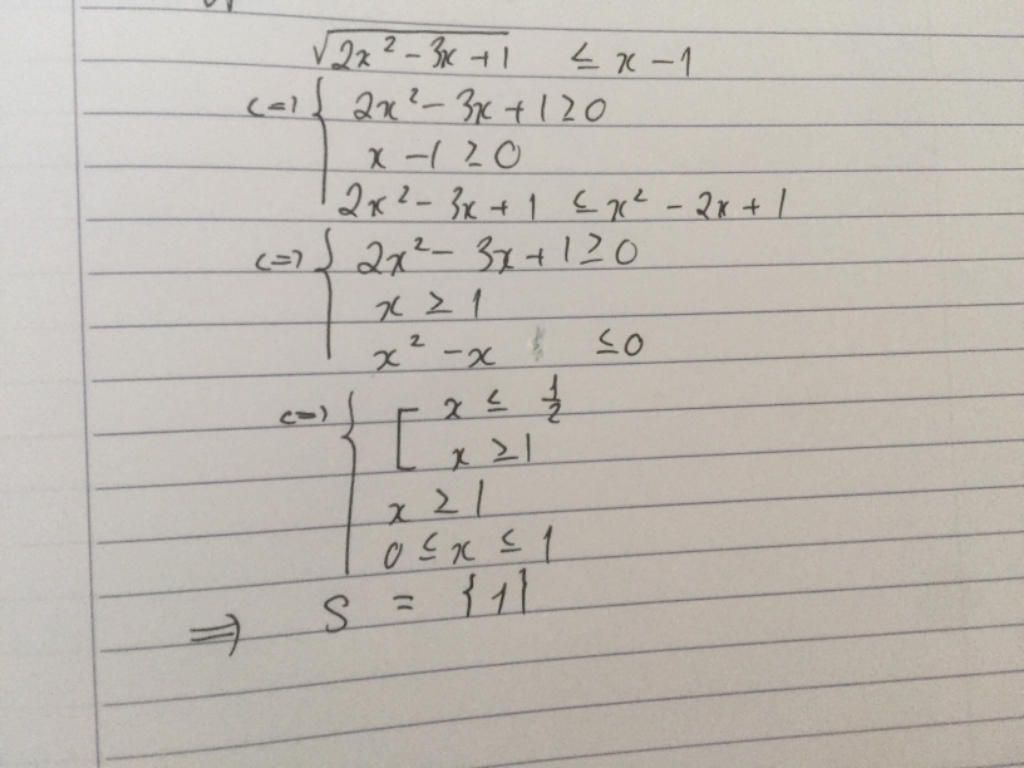 √(2x² - 3x + 1) ≤ x - 1
<=> { 2x² - 3x + 1 ≥ 0
x - 1 ≥ 0
2x² - 3x + 1 ≤ x² - 2x + 1
<=> { 2x² - 3x + 1 ≥ 0
x ≥ 1
x² - x ≤ 0
<=> { [ x ≤ 1/2
x ≥ 1
x ≥ 1
0 ≤ x ≤ 1
=> S = {1}